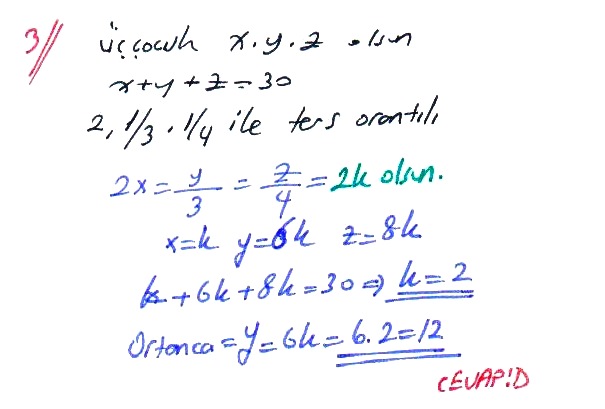 3// üç çocuk x.y.z olsun
x+y+z=30
2, 1/3, 1/4 ile ters orantılı
2x = y/3 = z/4 = 2k olsun.
x=k y=6k z=8k
k+6k+8k=30 ⇒ k=2
Ortanca=y=6k=6.2=12
CEVAP!D